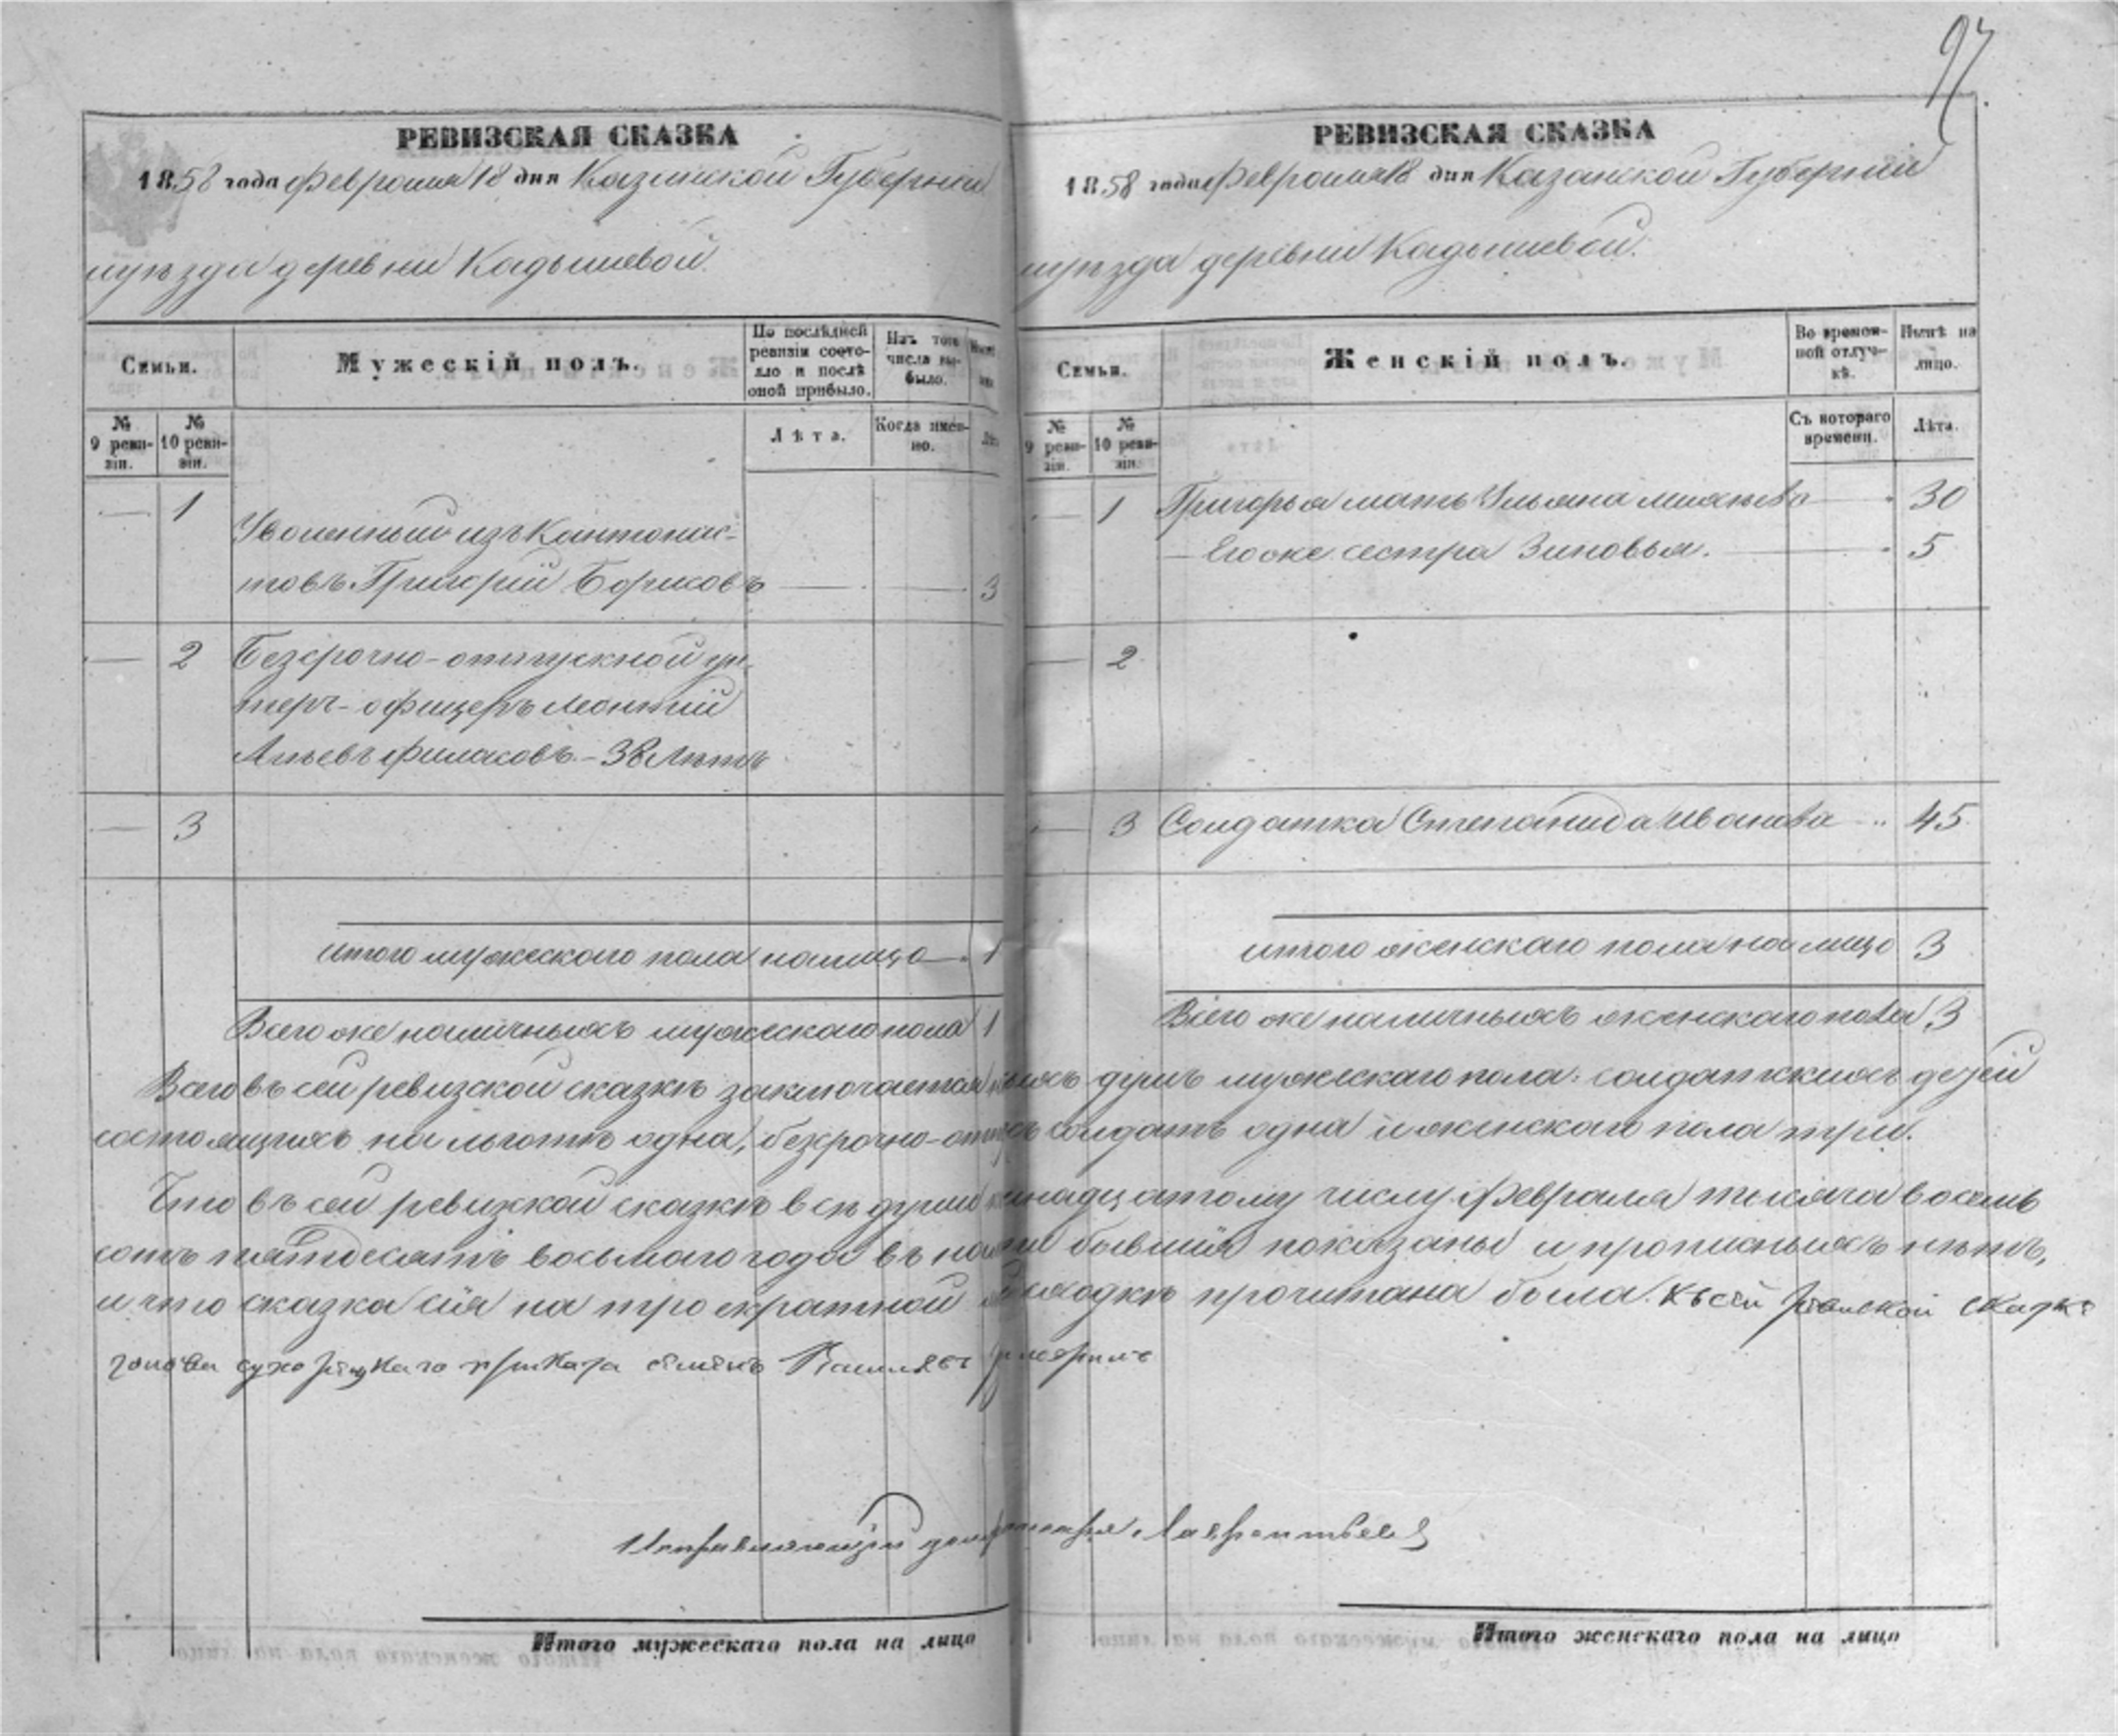 97
РЕВИЗСКАЯ СКАЗКА
1858 года Февраля 18 дня Казанской Губерніи
уѣзда деревни Кадышевой.
Семьи.
Мужескій полъ.
По послѣдней ревизіи состояло и послѣ оной прибыло.
Изъ того числа выбыло.
№ 9 ревизіи.
№ 10 ревизіи.
Лѣта.
Когда именно.
Лѣта
— 1
Уволенный изъ Кантонис-
товъ Григорій Борисовъ — — 3
— 2 Безсрочно-отпускной ун-
теръ-офицеръ Леонтій
филасовъ – 38 Лѣтъ
— 3
итого мужескаго пола налицо — 1
Всего же наличныхъ мужескаго пола 1
РЕВИЗСКАЯ СКАЗКА
1858 года Февраля 18 дня Казанской Губерніи
уѣзда деревни Кадышевой.
Семьи.
Женскій полъ.
Во временной отлучкѣ.
Нынѣ на лицо.
№ 9 ревизіи.
№ 10 ревизіи.
Съ котораго времени.
Лѣта.
— 1 Григорья мать Ульяна — 30
— Его же сестра Зиновья. — 5
— 2
— 3 Солдатка Степанида Иванова 45
итого женскаго пола на лицо 3
Всего же наличныхъ женскаго пола 3
Всего въ сей ревизской сказкѣ заключается душъ мужескаго пола: солдатскихъ детей
состоящихъ на льготѣ одна, безсрочно- солдатъ одна и женскаго пола три.
Что въ сей ревизской сказкѣ всѣ души числу Февраля тысяча восемь
сотъ пятдесятъ восьмаго года въ бывшія показаны и прописныхъ нѣтъ,
и что сказка сія на троекратной сходкѣ прочитана была. Къ сей ревиской сказке
голова приказа
Управляющій Лаврентьевъ
Итого мужескаго пола на лицо
Итого женскаго пола на лицо